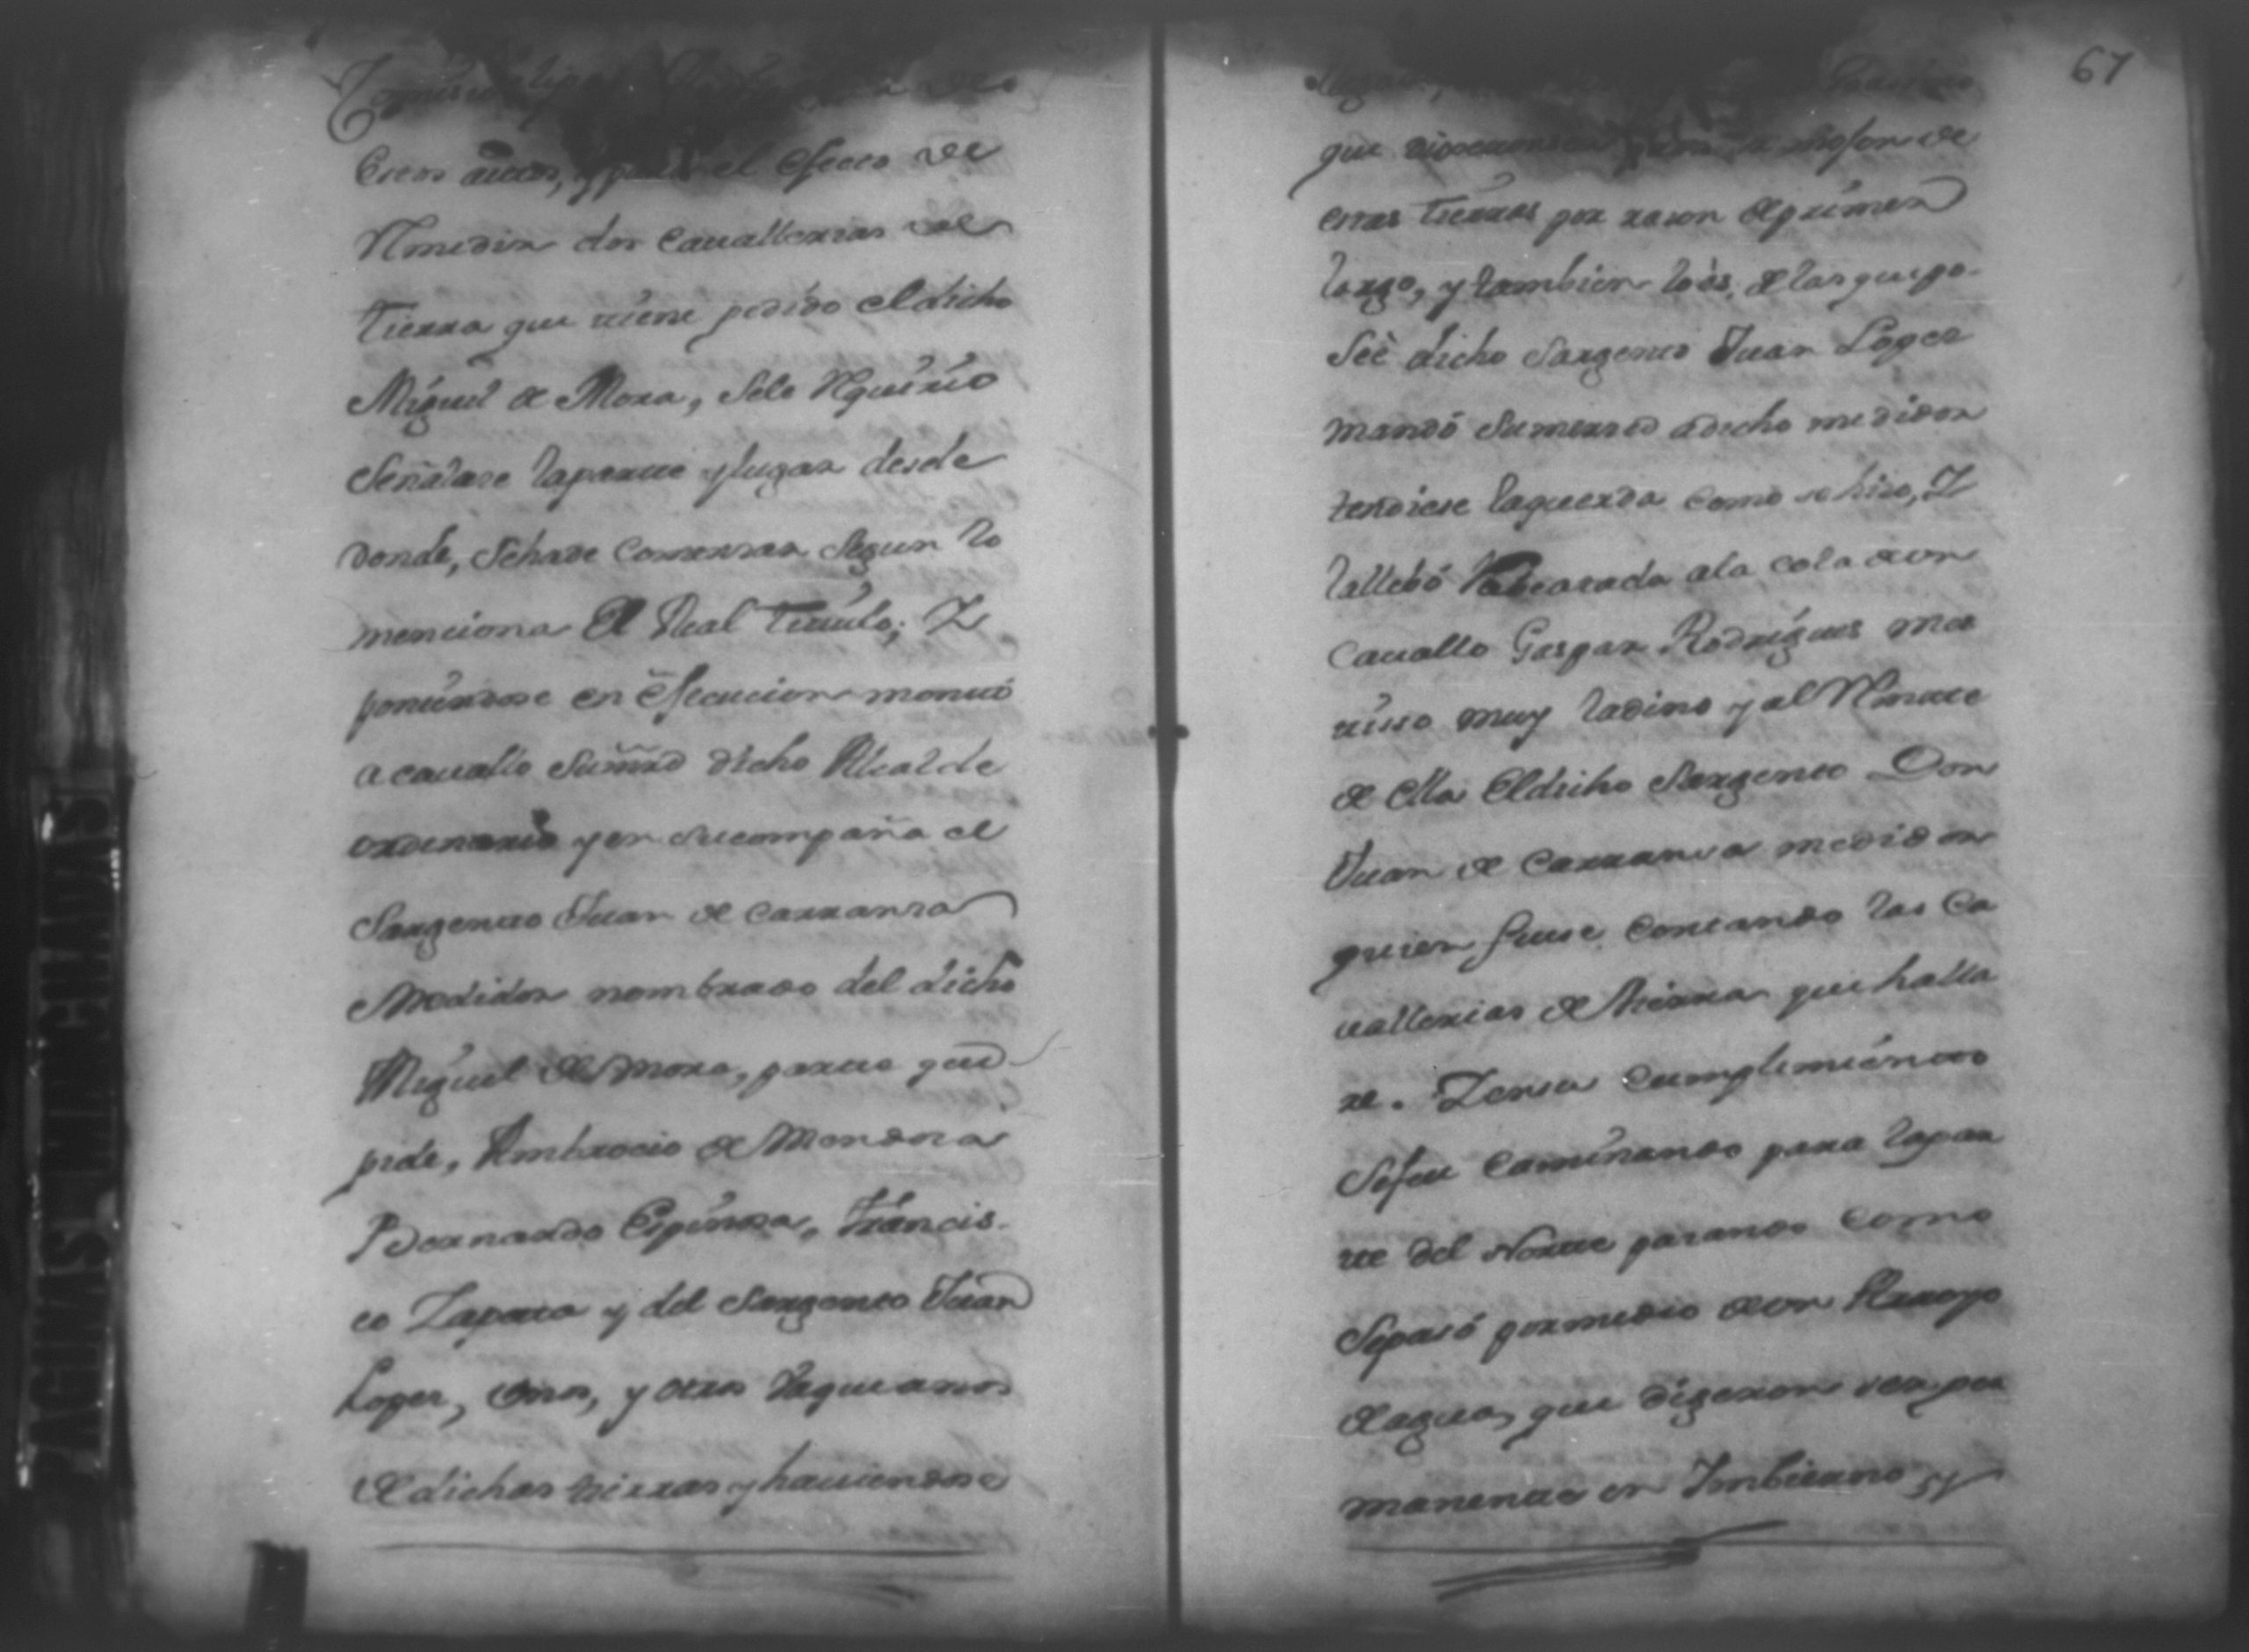 estos autos, y para el efecto de
Remedir dos cauallerias de
tierra que tiene pedido el dicho
Miguel de Mora, sele Requirio
señalase laparte ylugar desde
donde, sehade comensar segun lo
menciona El Real titulo; Y
poniendose en efecucion monto
acauallo sumrd dicho Alcalde
ordinario yen sucompaña el
Sargento Juan de Carransa
Medidor nombrado del dicho
Miguel de Mora, parte que
pide, Ambrocio de Mendosa
Bernardo Espinosa, Francis-
co Zapata y del Sargento Juan
Loper, otros, y otros baqueanos
de dichas tierras y hauiendose
67
que
estas tierras por rason de primer
largo, y tambien de las que po-
seé dicho Sargento Juan Loper
mandó sumersed adicho medidor
tendiese laquerda como se hiso, Y
lallebó Cabeasada ala cola deun
Cauallo Gaspar Rodrigues mes
tisso muy ladino y al Remate
de ella Eldicho Sargento Don
Juan de Carransa medidor
quien fuese contando las Ca
uallerias de tierra que halla
re. Yensu cumplimiento
sefue caminando para lapar
te del Norte pasando como
sepasó pormedio deun Arroyo
deagua, que digeron ser per
manente en Imbierno, y
PAGINAS MANCHADAS